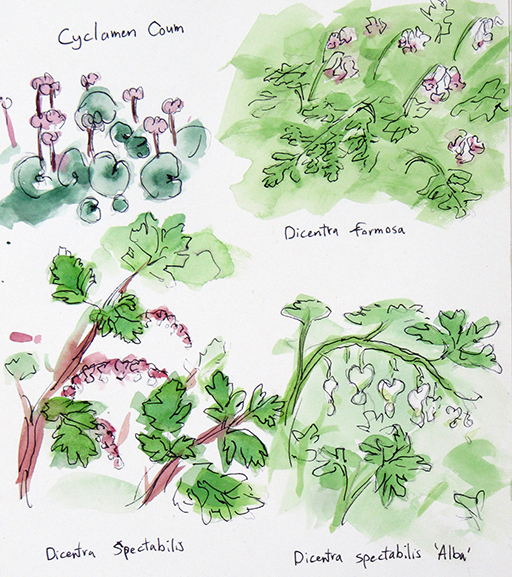 Cyclamen Coum
Dicentra formosa
Dicentra Spectabilis
Dicentra spectabilis 'Alba'